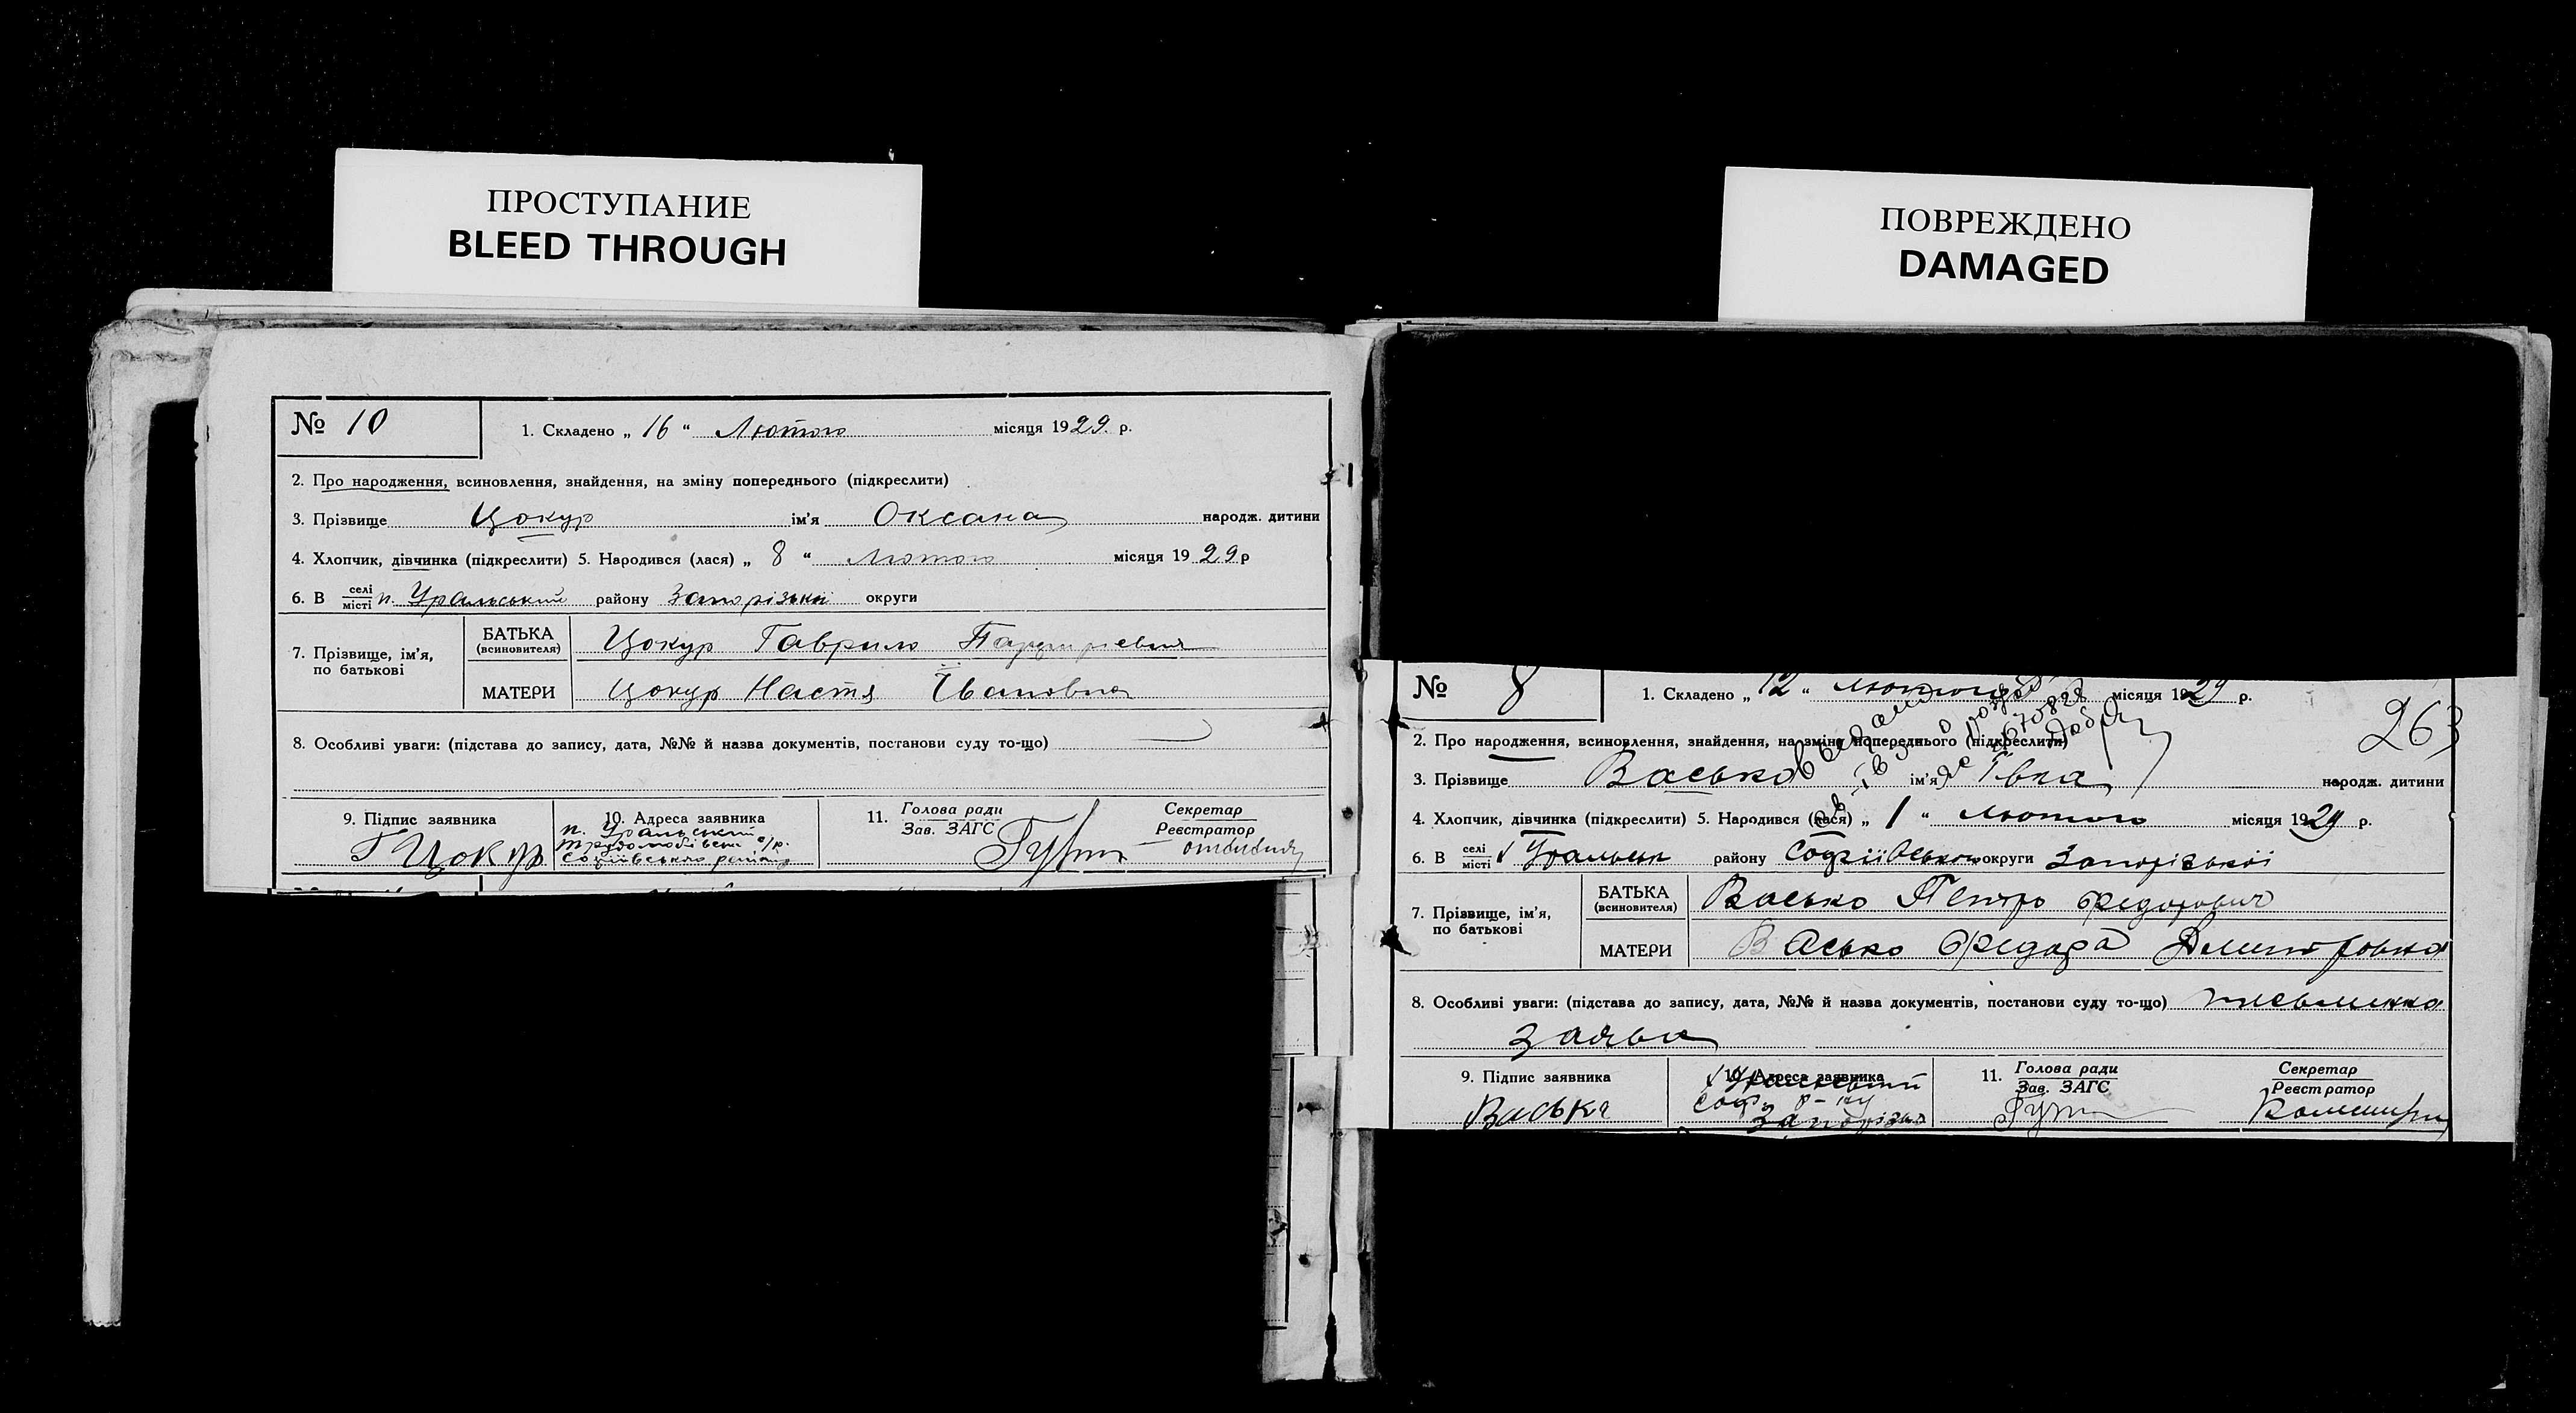 ПРОСТУПАНИЕ
BLEED THROUGH
№ 10
1. Складено „ 16 “ Лютого місяця 1929. р.
2. Про народження, всиновлення, знайдення, на зміну попереднього (підкреслити)
3. Прізвище Цокур ім'я Оксана народж. дитини
4. Хлопчик, дівчинка (підкреслити) 5. Народився (лася) „ 8 “ Лютого місяця 1929 р
6. В селі місті п. Уральський району Запорізькії округи
7. Прізвище, ім'я, по батькові
БАТЬКА (всиновителя) Цокур Гаврило
МАТЕРИ Цокур Настя Івановна
8. Особливі уваги: (підстава до запису, дата, №№ й назва документів, постанови суду то-що)
9. Підпис заявника
Г Цокур
10. Адреса заявника
п. Уральський
с/р.
Софіївського району
11. Голова ради
Зав. ЗАГС
Секретар
Реєстратор
ПОВРЕЖДЕНО
DAMAGED
№ 8
1. Складено „ 12 “ лютого місяця 1929 р.
263
2. Про народження, всиновлення, знайдення, на зміну попереднього (підкреслити)
3. Прізвище Васько ім'я Івка народж. дитини
4. Хлопчик, дівчинка (підкреслити) 5. Народився (лася) „ 1 “ лютого місяця 1929 р.
6. В селі місті Уральськ району Софіївськом округи Запорізькоі
7. Прізвище, ім'я, по батькові
БАТЬКА (всиновителя) Васько Петро Федорович
МАТЕРИ Васько Федора Дмитровна
8. Особливі уваги: (підстава до запису, дата, №№ й назва документів, постанови суду то-що) письменна
заява
9. Підпис заявника
Васька
10. Адреса заявника
Уральский
Соф. р-ну
Запоріжжя
11. Голова ради
Зав. ЗАГС
Секретар
Реєстратор